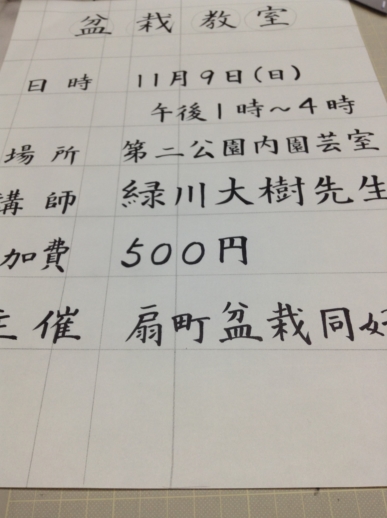 盆栽教室
日時 11月9日(日)
午後1時~4時
場所 第二公園内園芸室
講師 緑川大樹先生
加費 500円
主催 扇町盆栽同好